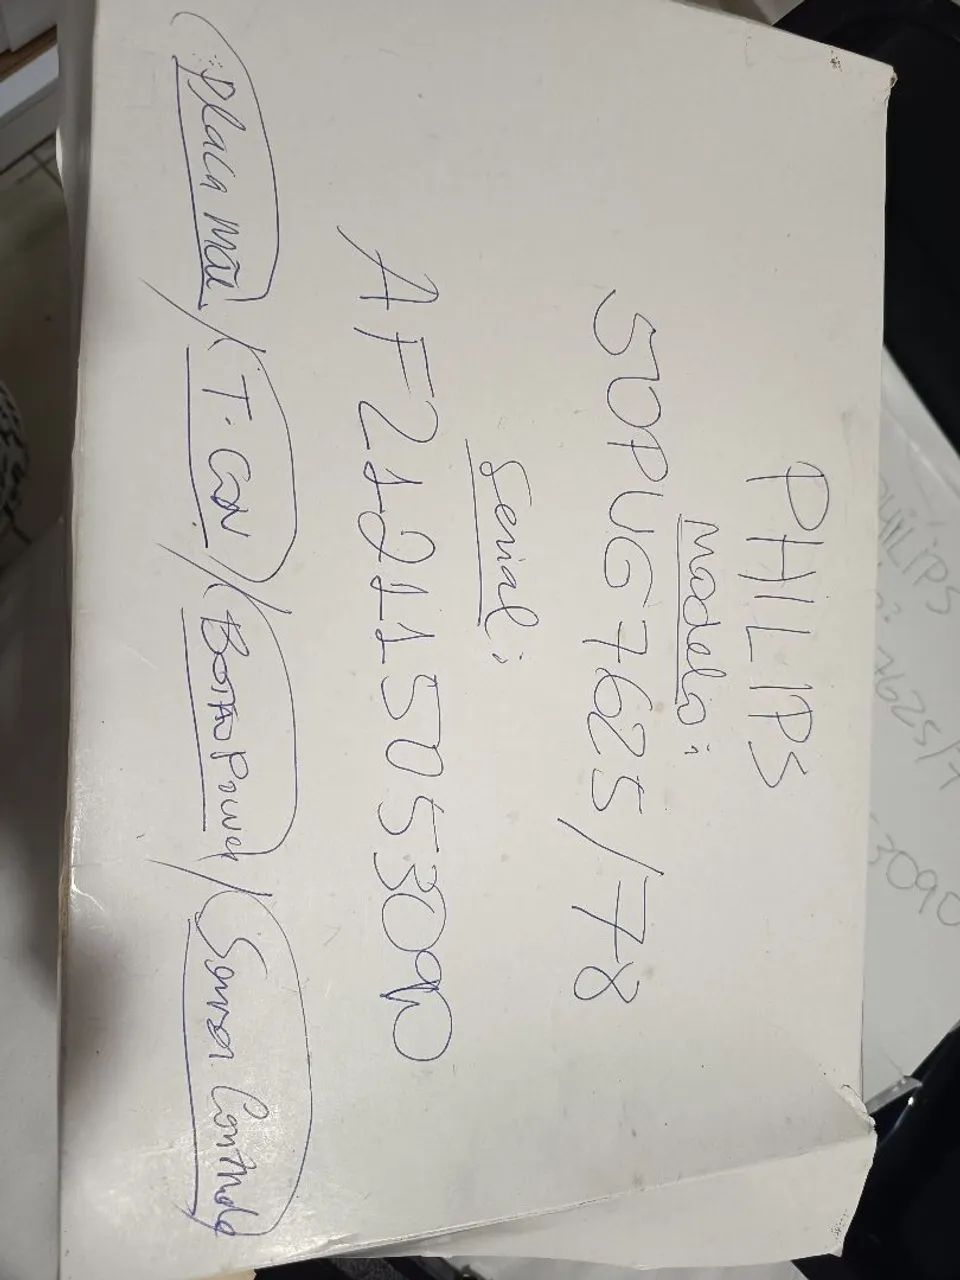 PHILIPS
Modelo:
50PUG7625/78
Serial:
AF212115053090
Placa Mãe / T-CON / Botão Power / Sensor Controle
PHILIPS
7625/7
3090